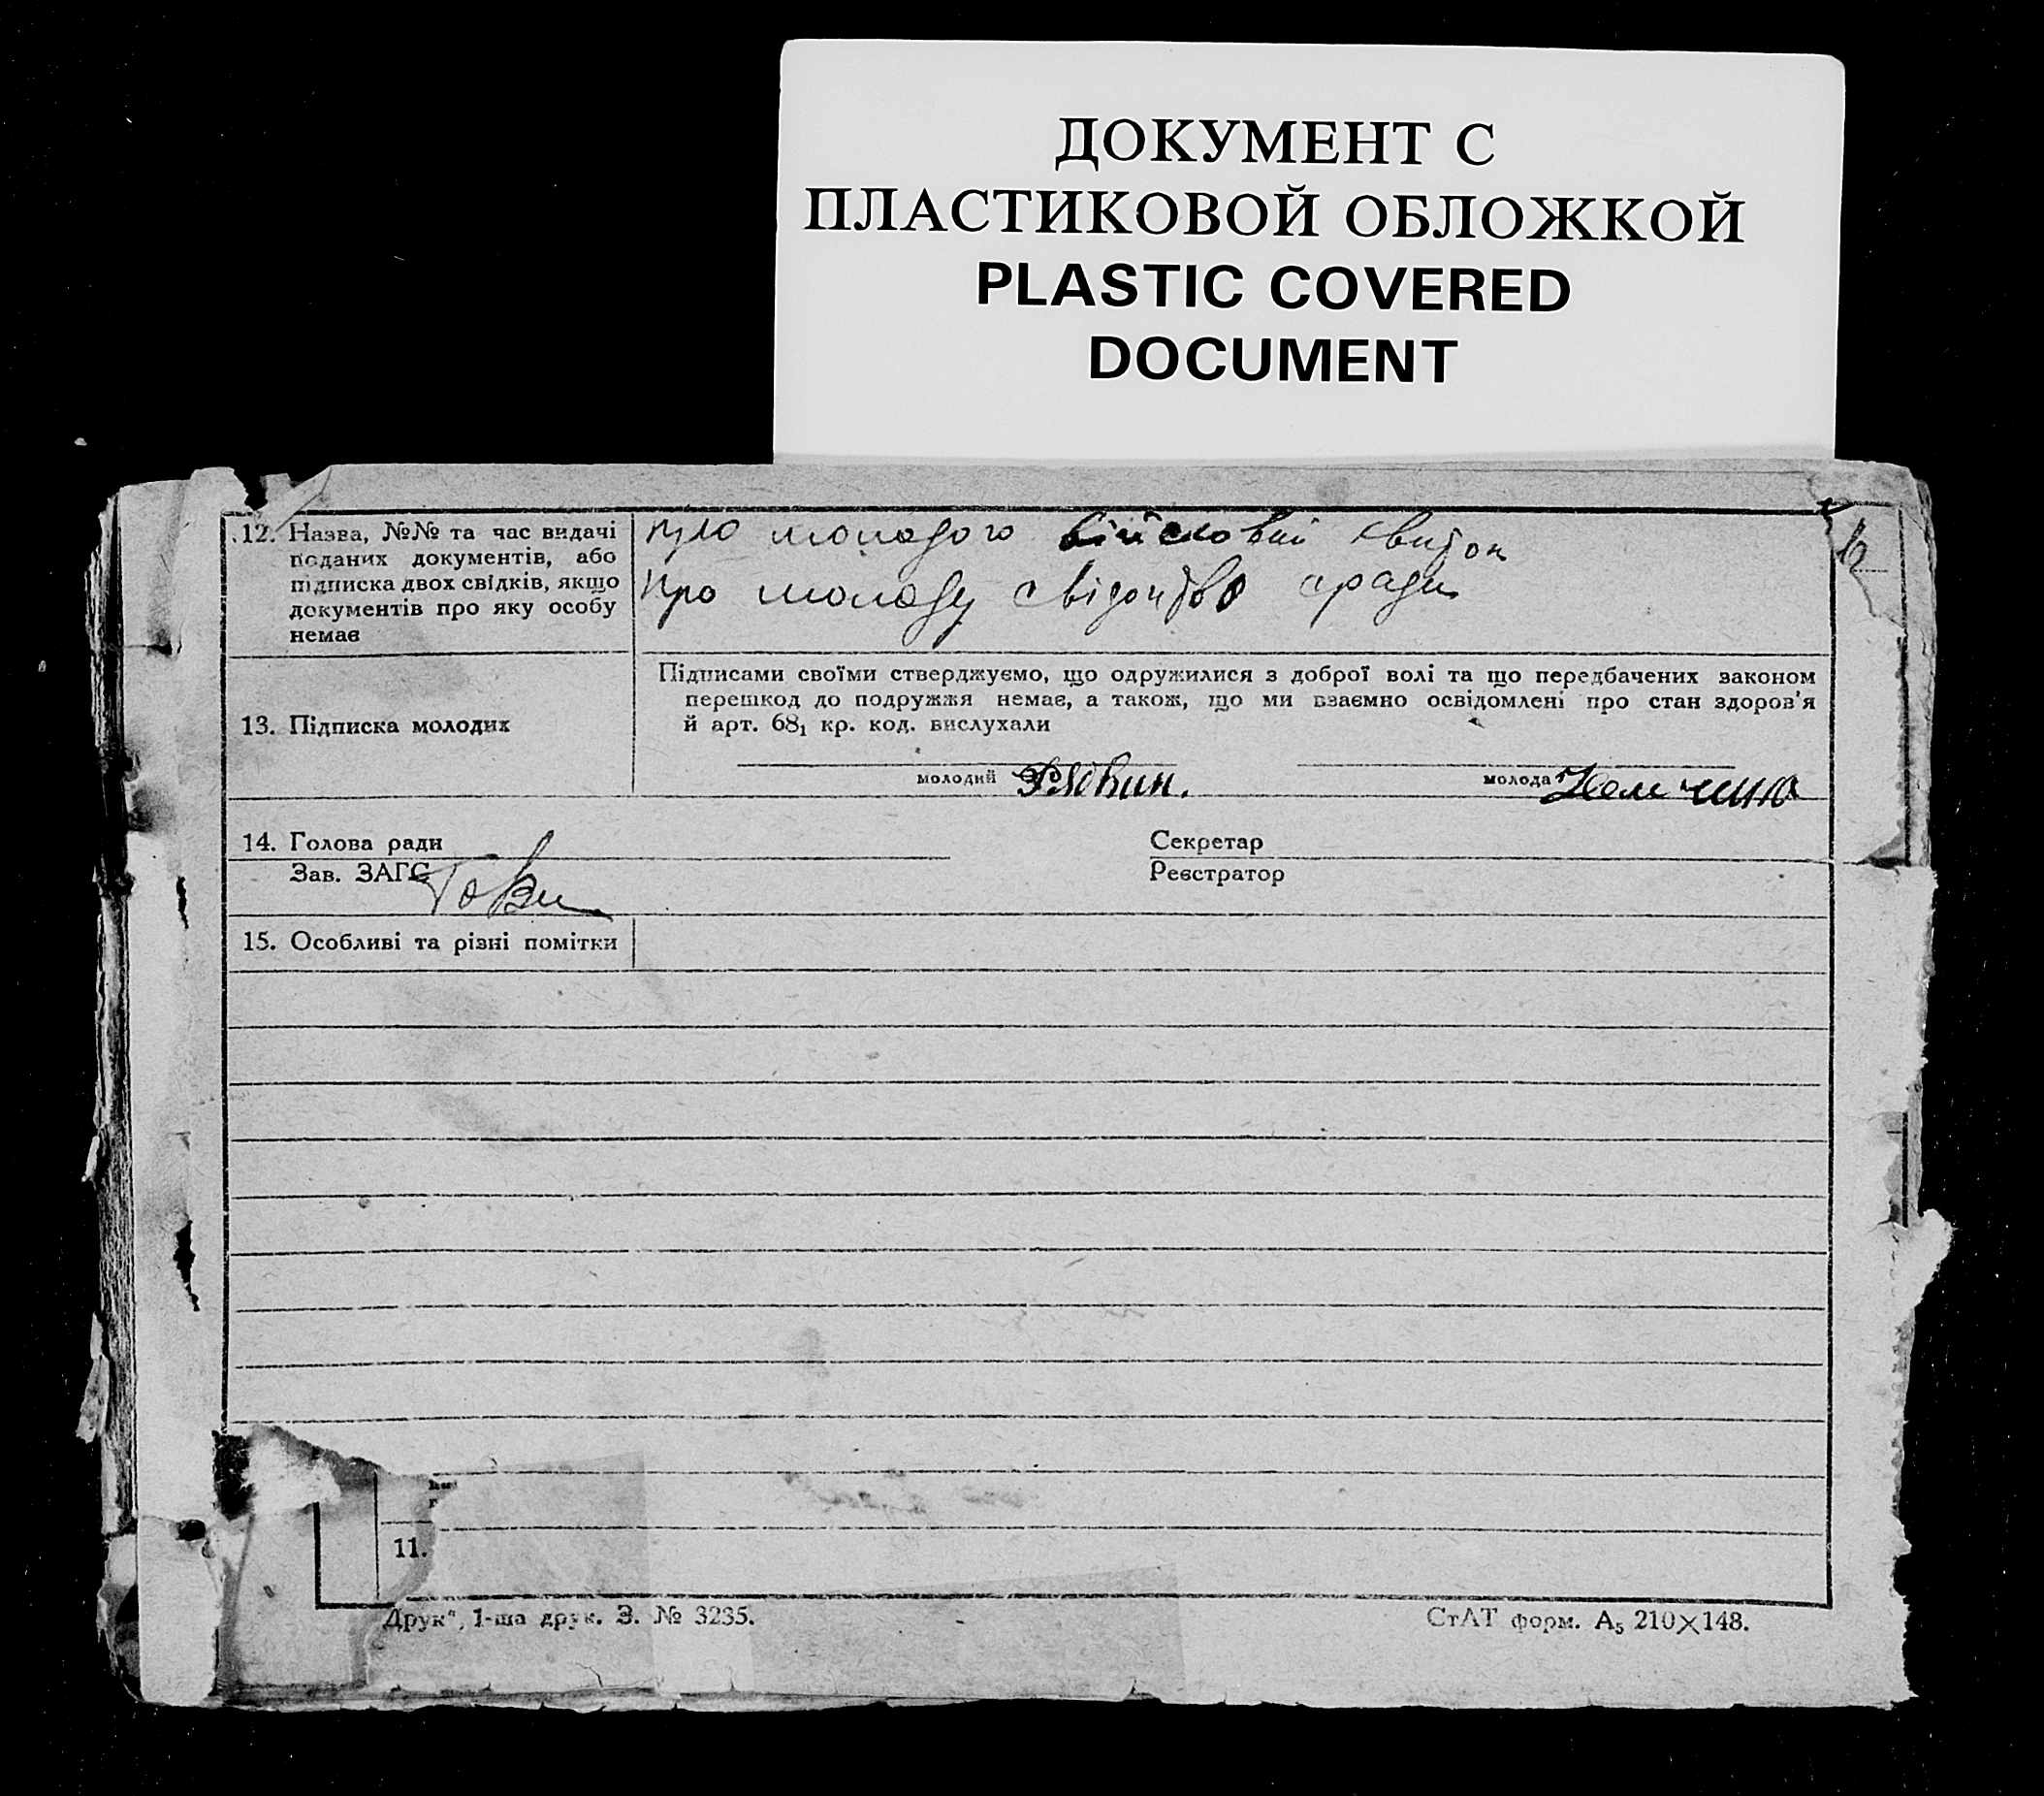 ДОКУМЕНТ С
ПЛАСТИКОВОЙ ОБЛОЖКОЙ
PLASTIC COVERED
DOCUMENT
12. Назва, №№ та час видачі
поданих документів, або
підписка двох свідків, якщо
документів про яку особу
немає
про молодого військовий квиток
про молоду свідоцтво сради
13. Підписка молодих
Підписами своїми стверджуємо, що одружилися з доброї волі та що передбачених законом
перешкод до подружжя немає, а також, що ми взаємно освідомлені про стан здоров'я
й арт. 68₁ кр. код. вислухали
молодий
молода
14. Голова ради
Секретар
Зав. ЗАГС
Реєстратор
15. Особливі та різні помітки
11.
Друк", 1-ша друк. З. № 3235.
СтАТ форм. А₅ 210×148.